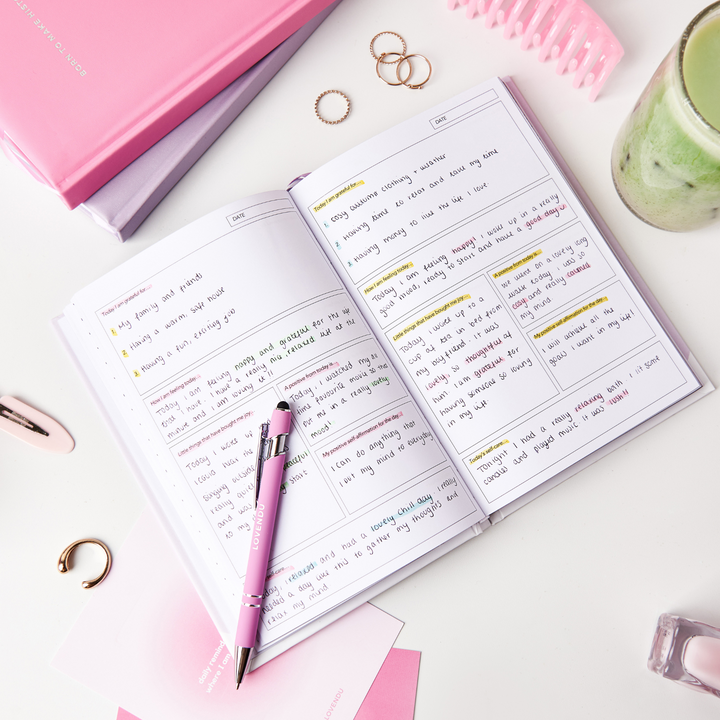 BORN TO MAKE HIST
DATE
Today I am grateful for...
1 My family and friends
2 Having a warm, safe house
3 Having a fun, exciting job
How I am feeling today...
Today, I am feeling happy and grateful for the life
relaxed
minute and I am loving
Little things that have bought me joy...
Today I woke up
singing
really
and was
to my
start
A positive from today is...
Today, I watched my
time favourite movie
for me in a really
mood!
My positive self-affirmation for the day...
I can do anything that
I put my mind to everyday
Today, I relaxed and had a lovely chill day. I really
needed a day like this to gather my thoughts and
relax my mind.
LOVENDU
DATE
Today I am grateful for...
1. Cosy autumn clothing + weather
2. Having time to relax and take my time
3. Having money to live the life I love.
How I am feeling today...
Today I am feeling happy! I woke up in a really
good mood, ready to start and have a good day
Little things that have bought me joy...
Today I woke up to a
cup of tea in bed from
my boyfriend. It was
lovely, so thoughtful of
him! I am grateful for
having someone so loving
in my life
A positive from today is...
We went on a lovely long
walk today. I was so
cosy and really calmed
my mind.
My positive self-affirmation for the day...
I will achieve all the
goals I want in my life!
Today's self-care...
Tonight I had a really relaxing bath. I lit some
candles and played music it was
daily remind
where I am
LOVENDU